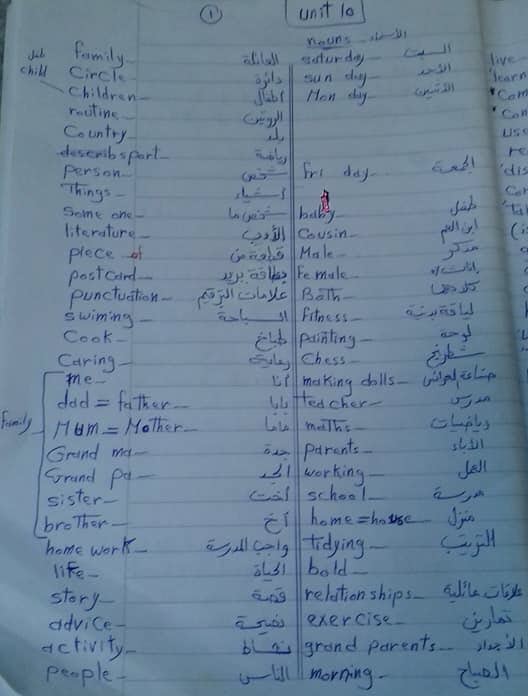 ① unit 10
nouns الأسماء
طفل
child
family العائلة
Circle دائرة
Children أطفال
routine الروتين
Country بلد
describ sport رياضة
person شخص
Things أشياء
Some one شخص ما
literature الأدب
piece of قطعة من
post card بطاقة بريد
punctuation علامات الترقيم
swiming السباحة
Cook طباخ
Caring رعاية
family
me أنا
dad = father بابا
Mum = Mother ماما
Grand ma جدة
Grand pa الجد
sister أخت
brother أخ
home work واجب المدرسة
life الحياة
story قصة
advice نصيحة
activity نشاط
people الناس
saturday السبت
sun day الأحد
Mon day الأثنين
fri day الجمعة
baby طفل
Cousin ابن العم
Male مذكر
Female
Both كلاهما
fitness لياقة بدنية
painting لوحة
Chess شطرنج
making dolls صناعة العرائس
teacher مدرس
maths رياضيات
parents الأباء
working العمل
school مدرسة
home = house منزل
tidying الترتيب
bold
relationships علاقات عائلية
exercise تمارين
grand parents الأجداد
morning الصباح
live
learn